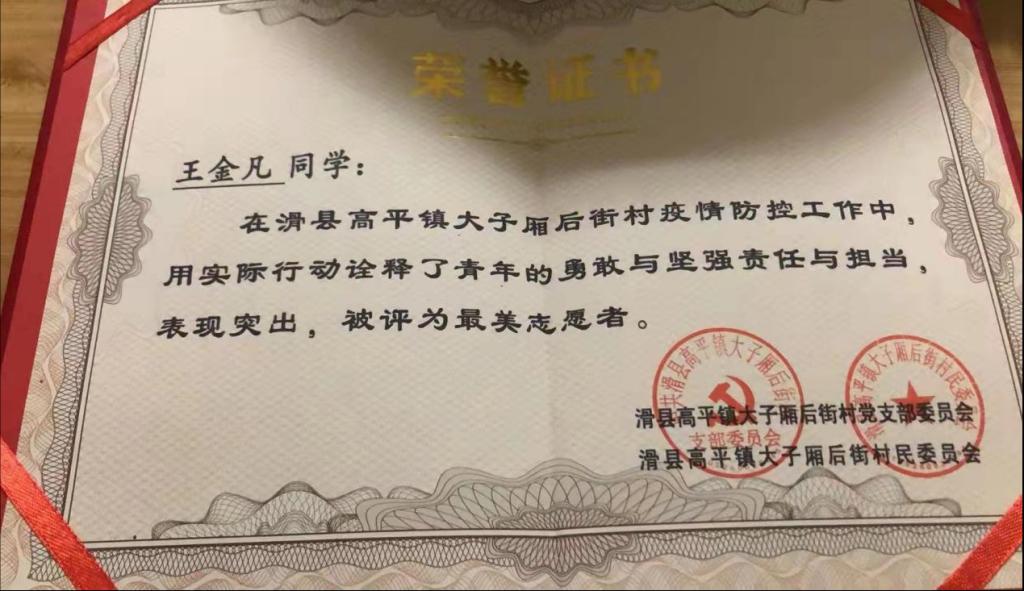 荣誉证书
王金凡 同学：
在滑县高平镇大子厢后街村疫情防控工作中，
用实际行动诠释了青年的勇敢与坚强责任与担当，
表现突出，被评为最美志愿者。
共滑县高平镇大子厢后街
支部委员会
高平镇大子厢后街村民委员会
滑县高平镇大子厢后街村党支部委员会
滑县高平镇大子厢后街村民委员会